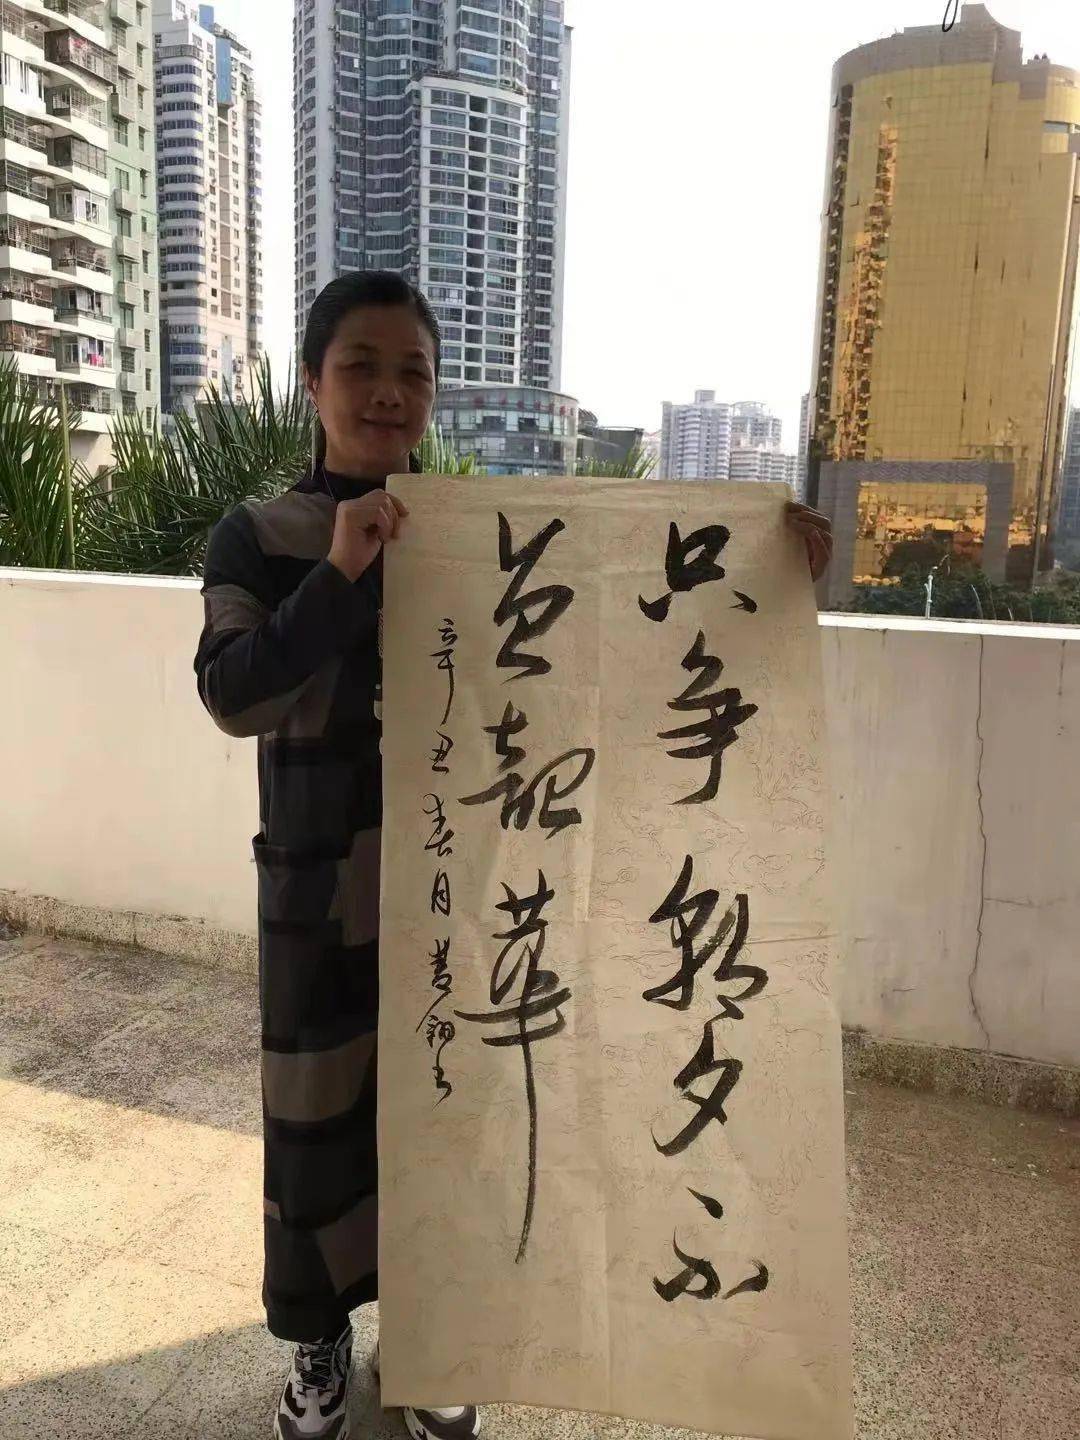 只争朝夕不
负韶华
辛丑春月黄翔书